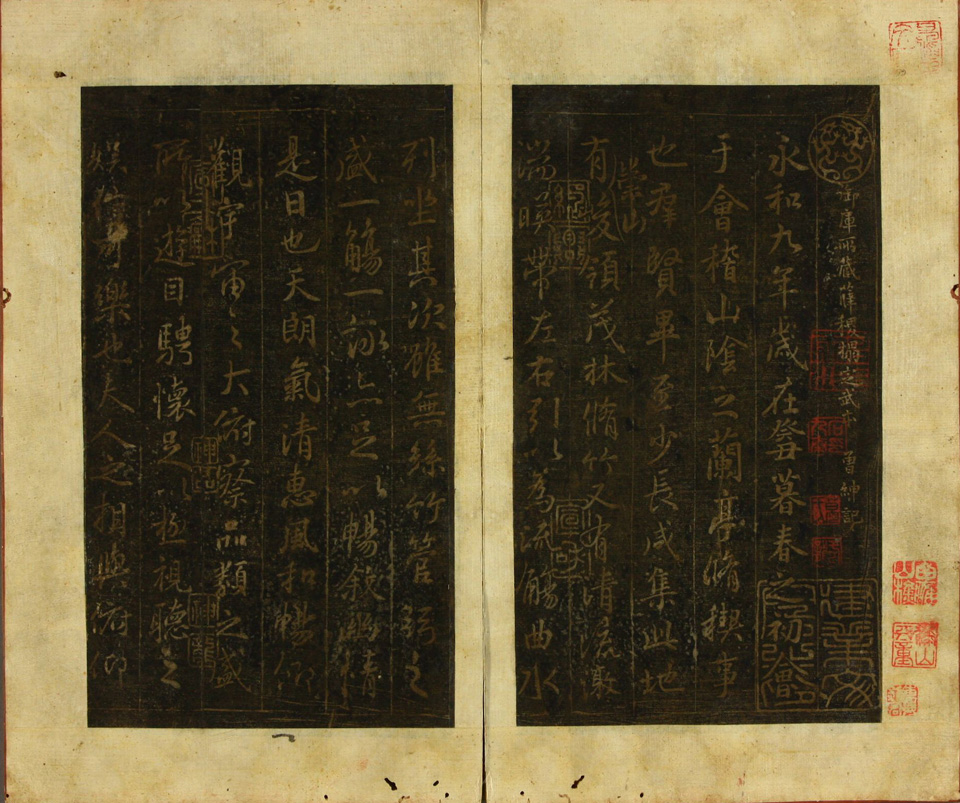 御庫所藏薛稷搨定武本 曾紳記
永和九年歲在癸丑暮春之初會
于會稽山陰之蘭亭脩稧事
也羣賢畢至少長咸集此地
有崇山峻領茂林脩竹又有清流激
湍暎帶左右引以為流觴曲水
列坐其次雖無絲竹管弦之
盛一觴一詠亦足以暢敘幽情
是日也天朗氣清惠風和暢仰
觀宇宙之大俯察品類之盛
所以遊目騁懷足以極視聽之
娛信可樂也夫人之相與俯仰